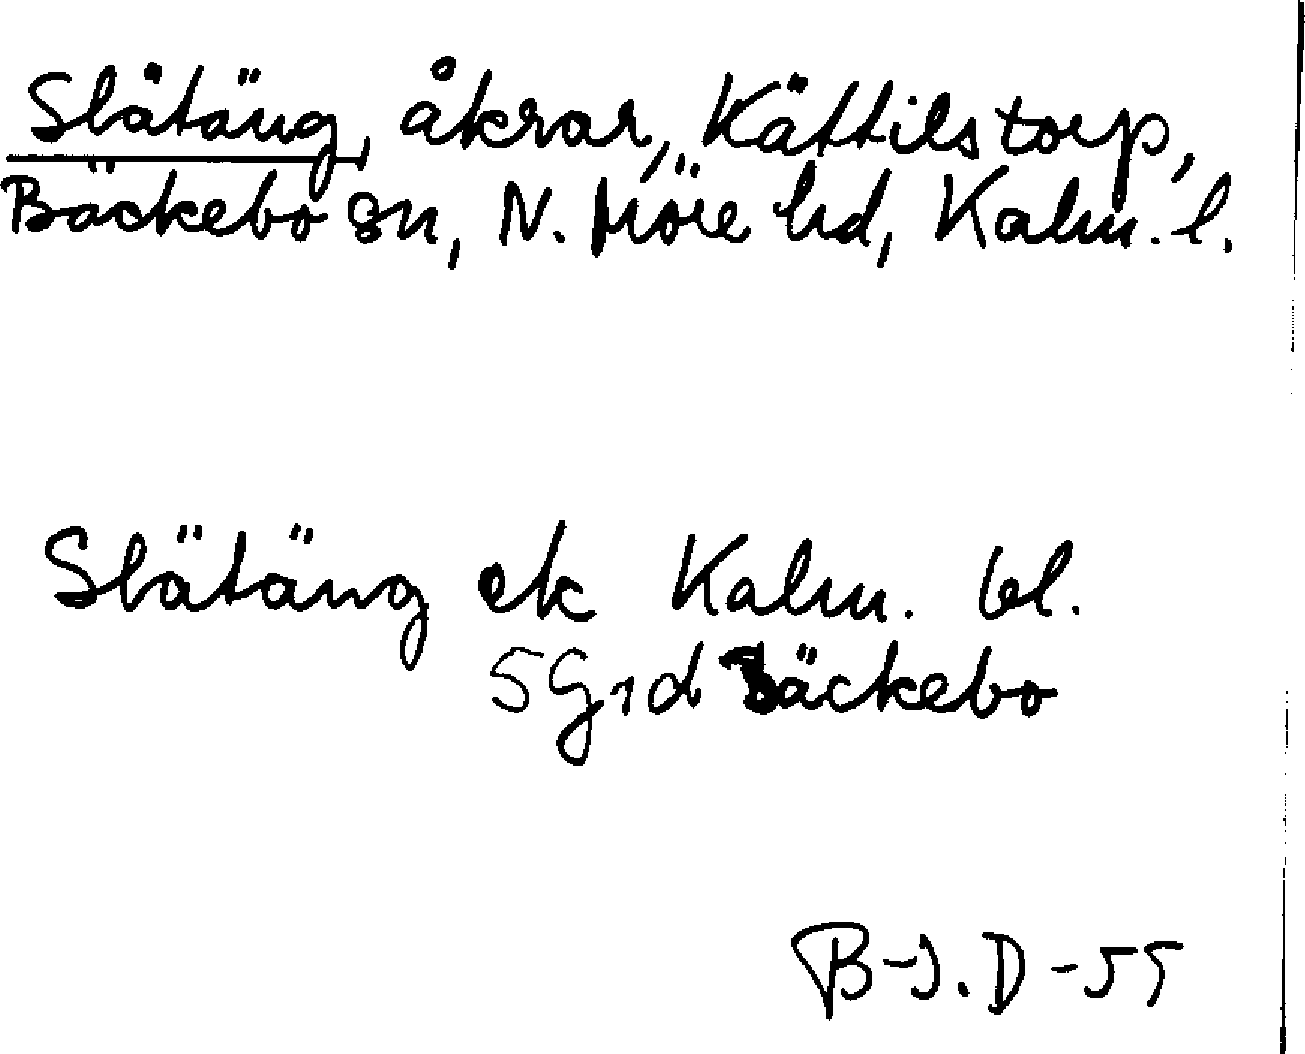 Slåtäng, åkrar, Kättilstorp,
Bäckebo sn, N. Möre hd, Kalm. l.
Slätäng ek Kalm. bl.
5G1d Bäckebo
B-J.D-55